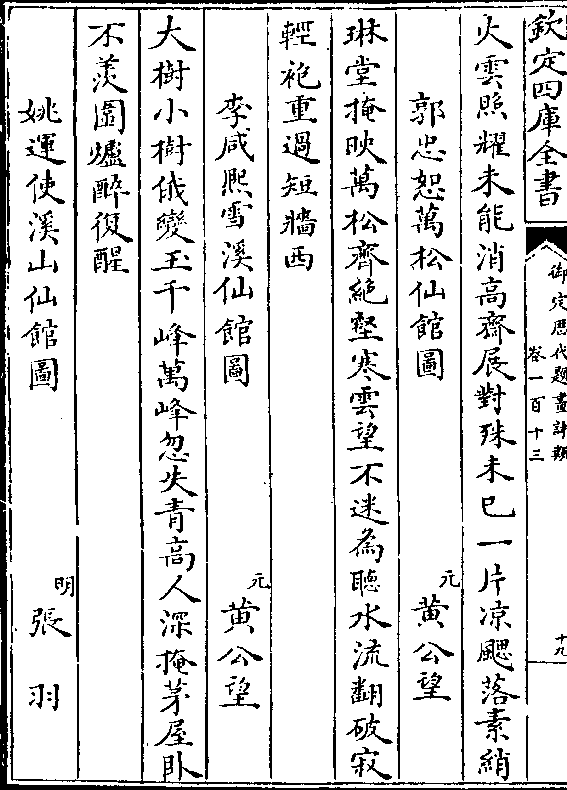 欽定四庫全書
御定歷代題畫詩類
卷一百十三
十九
火雲照耀未能消高齋展對殊未已一片凉颸落素綃
郭忠恕萬松仙館圖
元
黄公望
琳堂掩映萬松齊絶壑寒雲望不迷為聽水流翻破寂
輕袍重過短牆西
李咸熙雪溪仙館圖
元
黄公望
大樹小樹俄變玉千峰萬峰忽失青高人深掩茅屋卧
不羨圍爐醉復醒
姚運使溪山仙館圖
明
張羽